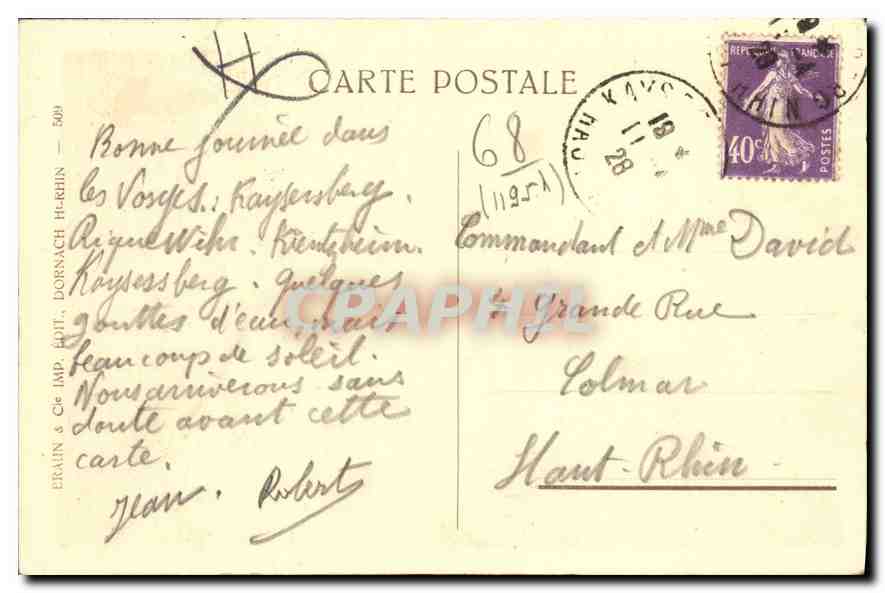 CARTE POSTALE
Bonne journée dans
les Vosges : Kaysersberg.
RiqueWihr. Kientzheim.
Kaysersberg. quelques
gouttes d'eau, mais
beaucoup de soleil.
Nous arriverons sans
doute avant cette
carte.
Jean. Robert
BRAUN & Cie IMP. EDIT., DORNACH Ht-RHIN — 509
68
(Y5611)
18
11
28
REPUBLIQUE FRANCAISE
40c
POSTES
Commandant et Mme David
Grande Rue
Colmar
Haut-Rhin
CPAPHIL